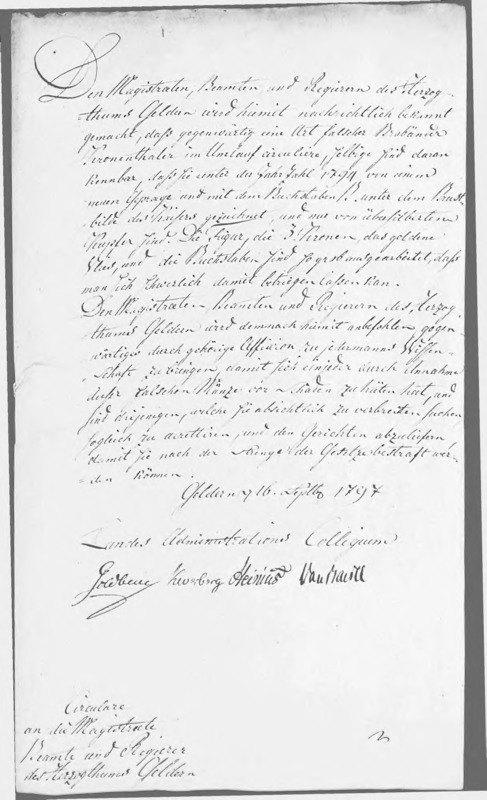 Den Magistraten, Beamten und Regierern des Herzog-
thums Geldern wird hiemit nachrichtlich bekannt
gemacht, daß gegenwärtig eine Art falscher Brabänder
Kronenthaler im Umlauf circuliere, selbige sind daran
kennbar, daß sie unter der Jahrzahl 1794 von einem
neuen Gepräge und mit dem Buchstaben B. unter dem Brust-
bilde des Kaisers gezeichnet, und nur von übersilberten
Kupfer sind. Die Figur, die 3. Kronen, das goldene
Vlies, und die Buchstaben sind so grob ausgearbeitet, daß
man sich schwerlich damit betriegen lassen kan.
Den Magistraten Beamten und Regierern des Herzog-
thums Geldern wird demnach hiemit anbefohlen gegen-
wärtiges durch gehörige Affixion zu jedermanns Wissen-
schaft zu bringen, damit sich einjeder durch Annahme
dieser falschen Münze vor Schaden zu hüten hat, und
sind diejenigen, welche sie absichtlich zu verbreiten suchen
sogleich zu arretiren, und den Gerichten abzuliefern
damit sie nach der Strenge der Gesetze bestraft wer-
den können.
Geldern 16. Septbr 1797
Landes Administrations Collegium
Keverberg Heinius
Circulare
an die Magistraete
Beamte und Regierer
des Herzogthums Geldern